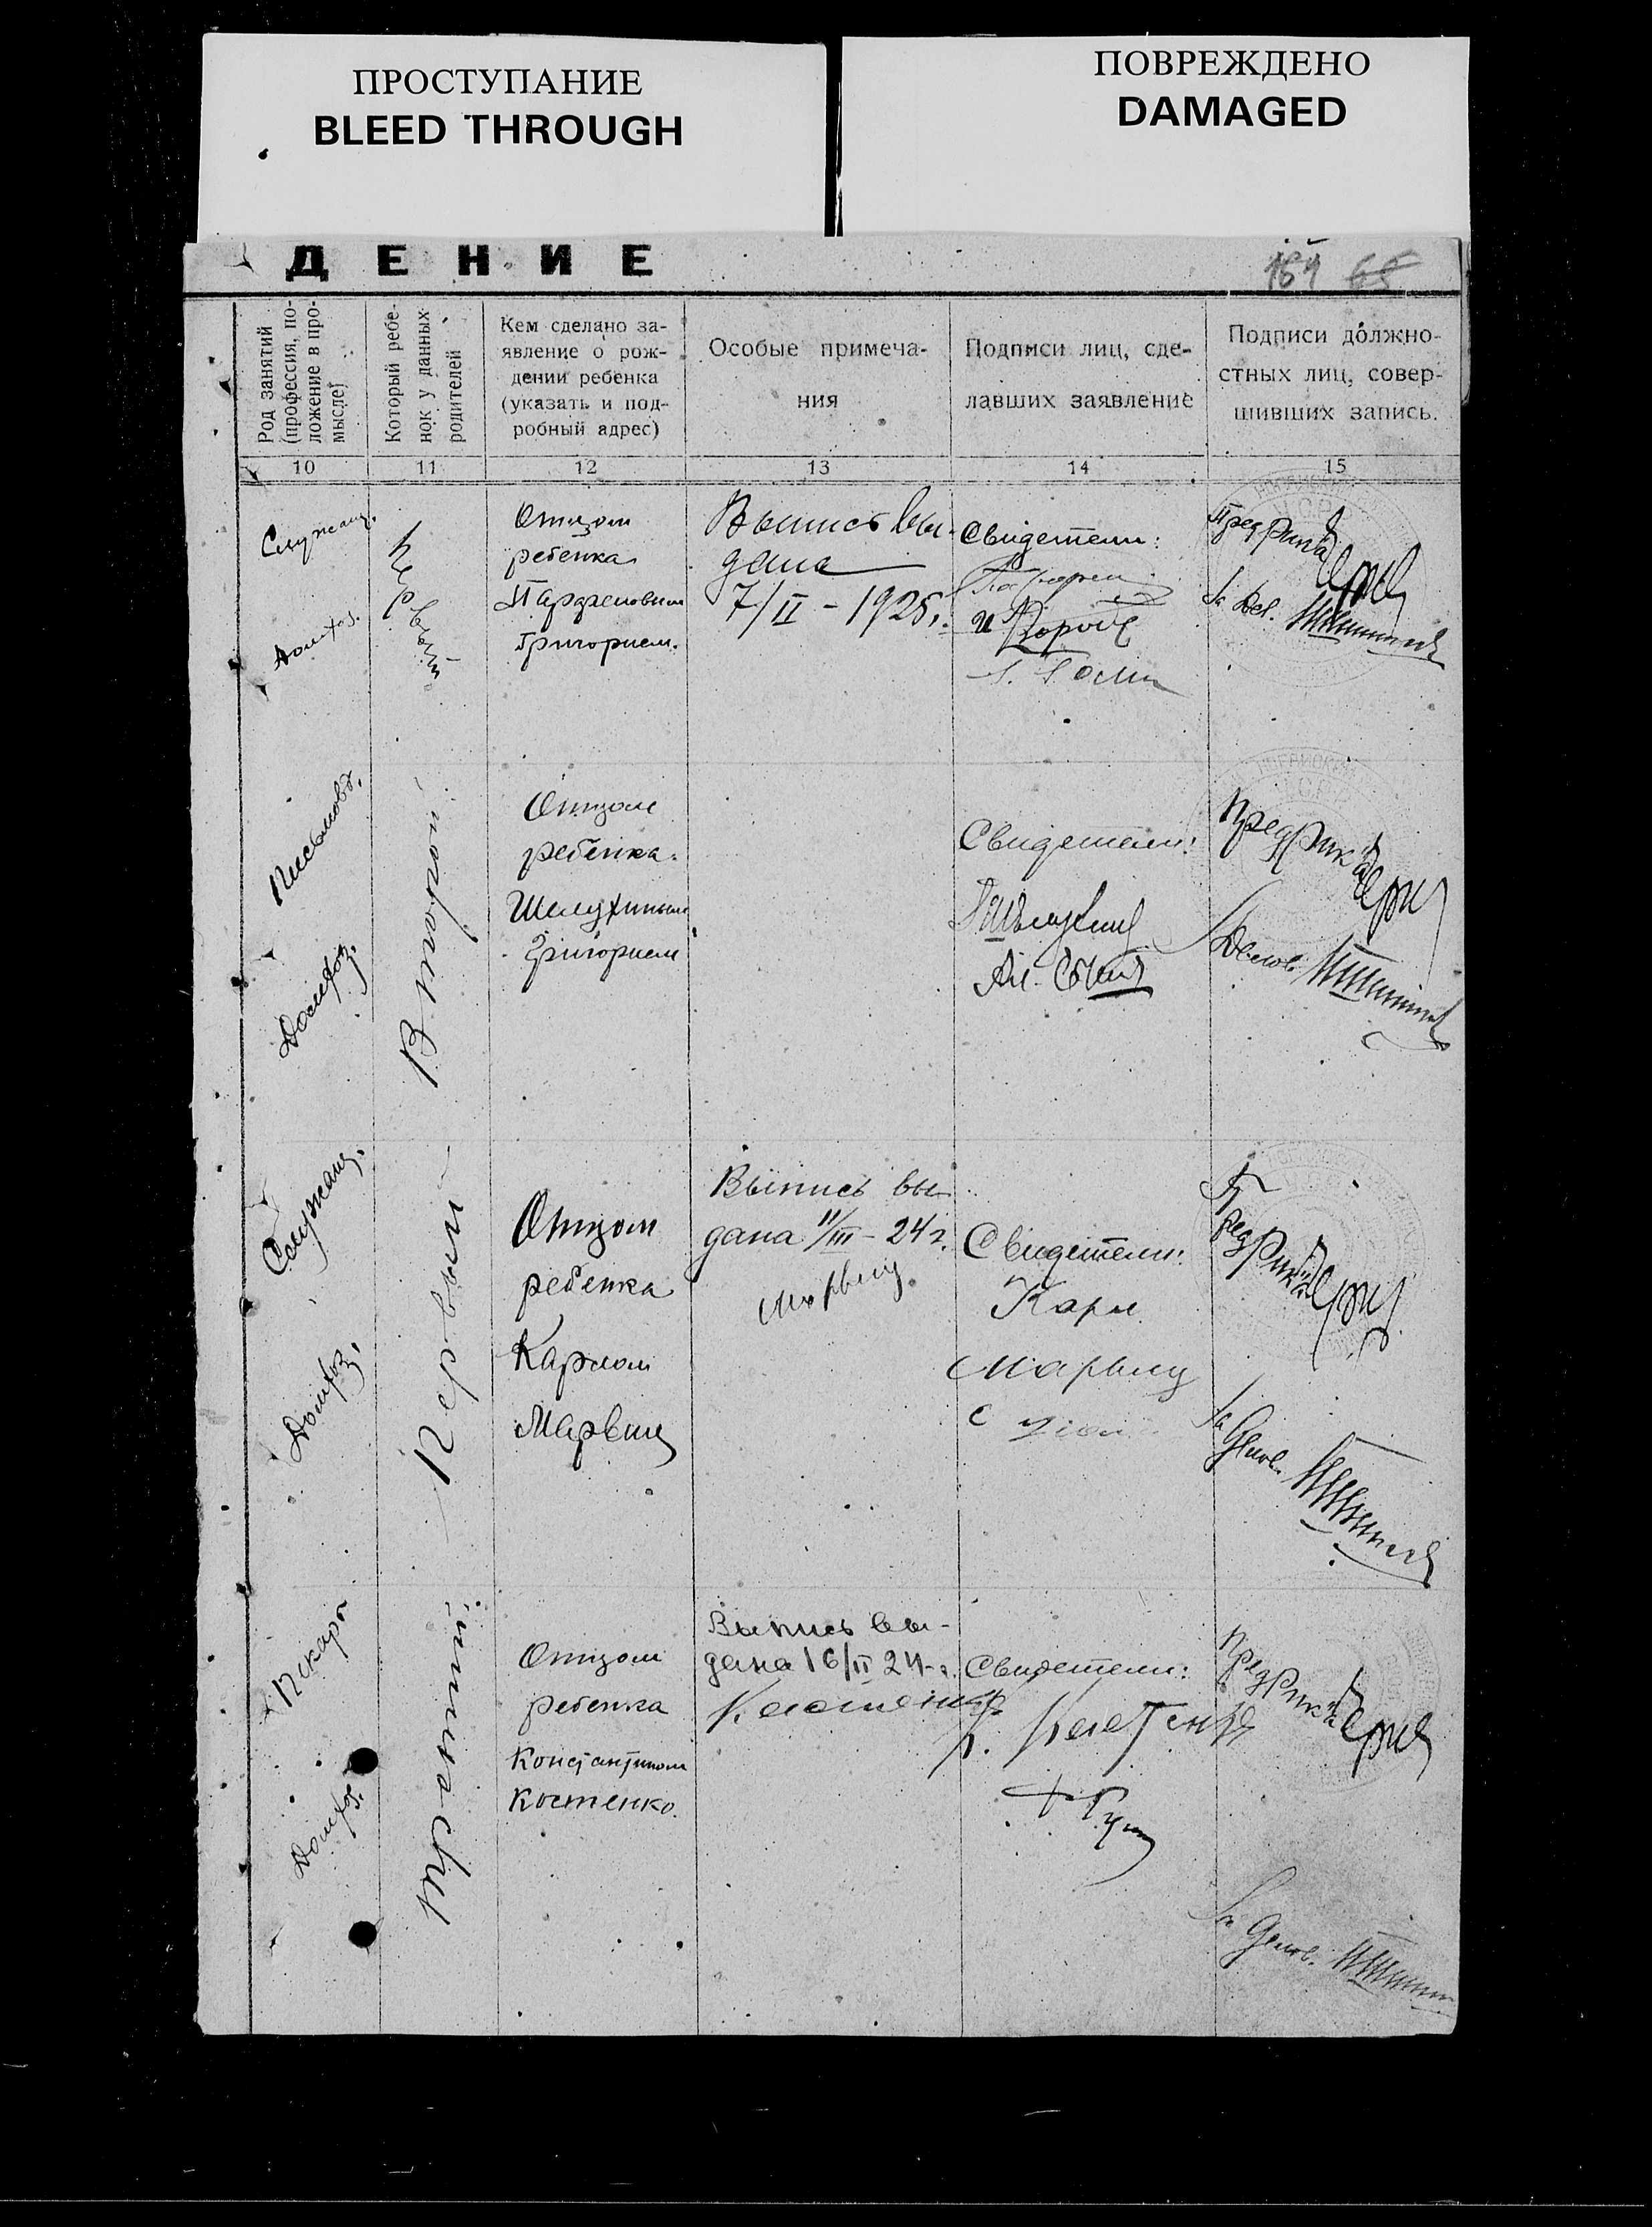 ПРОСТУПАНИЕ
BLEED THROUGH
ПОВРЕЖДЕНО
DAMAGED
ДЕНИЕ
Род занятий
(профессия, по-
ложение в про-
мысле)
Который ребе-
нок у данных
родителей
Кем сделано за-
явление о рож-
дении ребенка
(указать и под-
робный адрес)
Особые примеча-
ния
Подписи лиц, сде-
лавших заявление
Подписи должно-
стных лиц, совер-
шивших запись.
10
11
12
13
14
15
Служащ.
Домхоз.
Первый
Отцом
ребенка
Григорием.
Выпись вы-
дана
7/II - 1925г.
Свидетели:
и
Пред Рика
За Дел.
Письмов.
Домхоз.
Второй
Отцом
ребенка
Шелухиным
Григорием
Свидетели:
Пред Рика
Делов.
Служащ.
Домхоз.
Первый
Отцом
ребенка
Карлом
Марвиц
Выпись вы
дана 11/III - 24 г.
Свидетели:
Карл
Пред Рика
За Делов.
Пекарь
Домхоз.
Третий
Отцом
ребенка
Константином
Костенко.
Выпись вы-
дана 16/II 24 г.
Свидетели:
Пред Рика
За Делов.